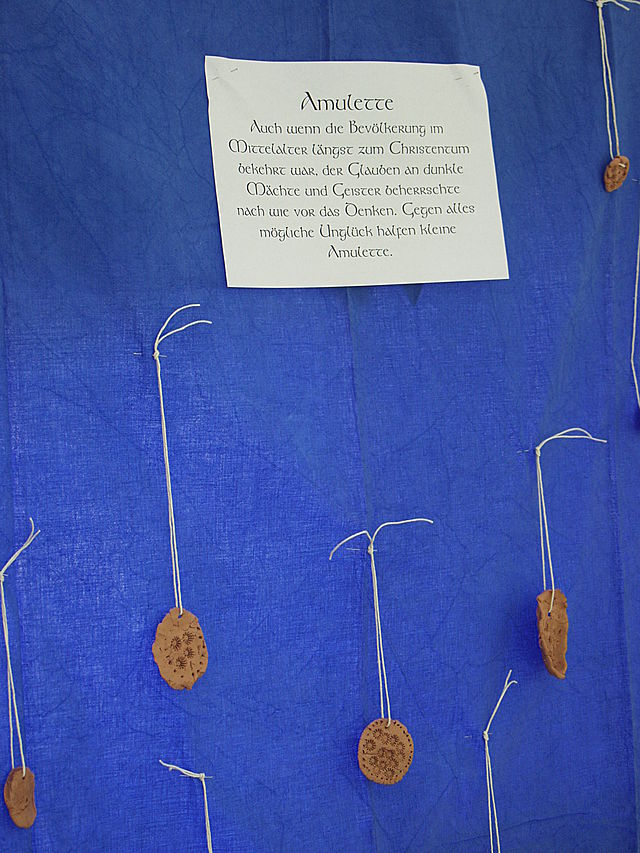 Amulette
Auch wenn die Bevölkerung im
Mittelalter längst zum Christentum
bekehrt war, der Glauben an dunkle
Mächte und Geister beherrschte
nach wie vor das Denken. Gegen alles
mögliche Unglück halfen kleine
Amulette.